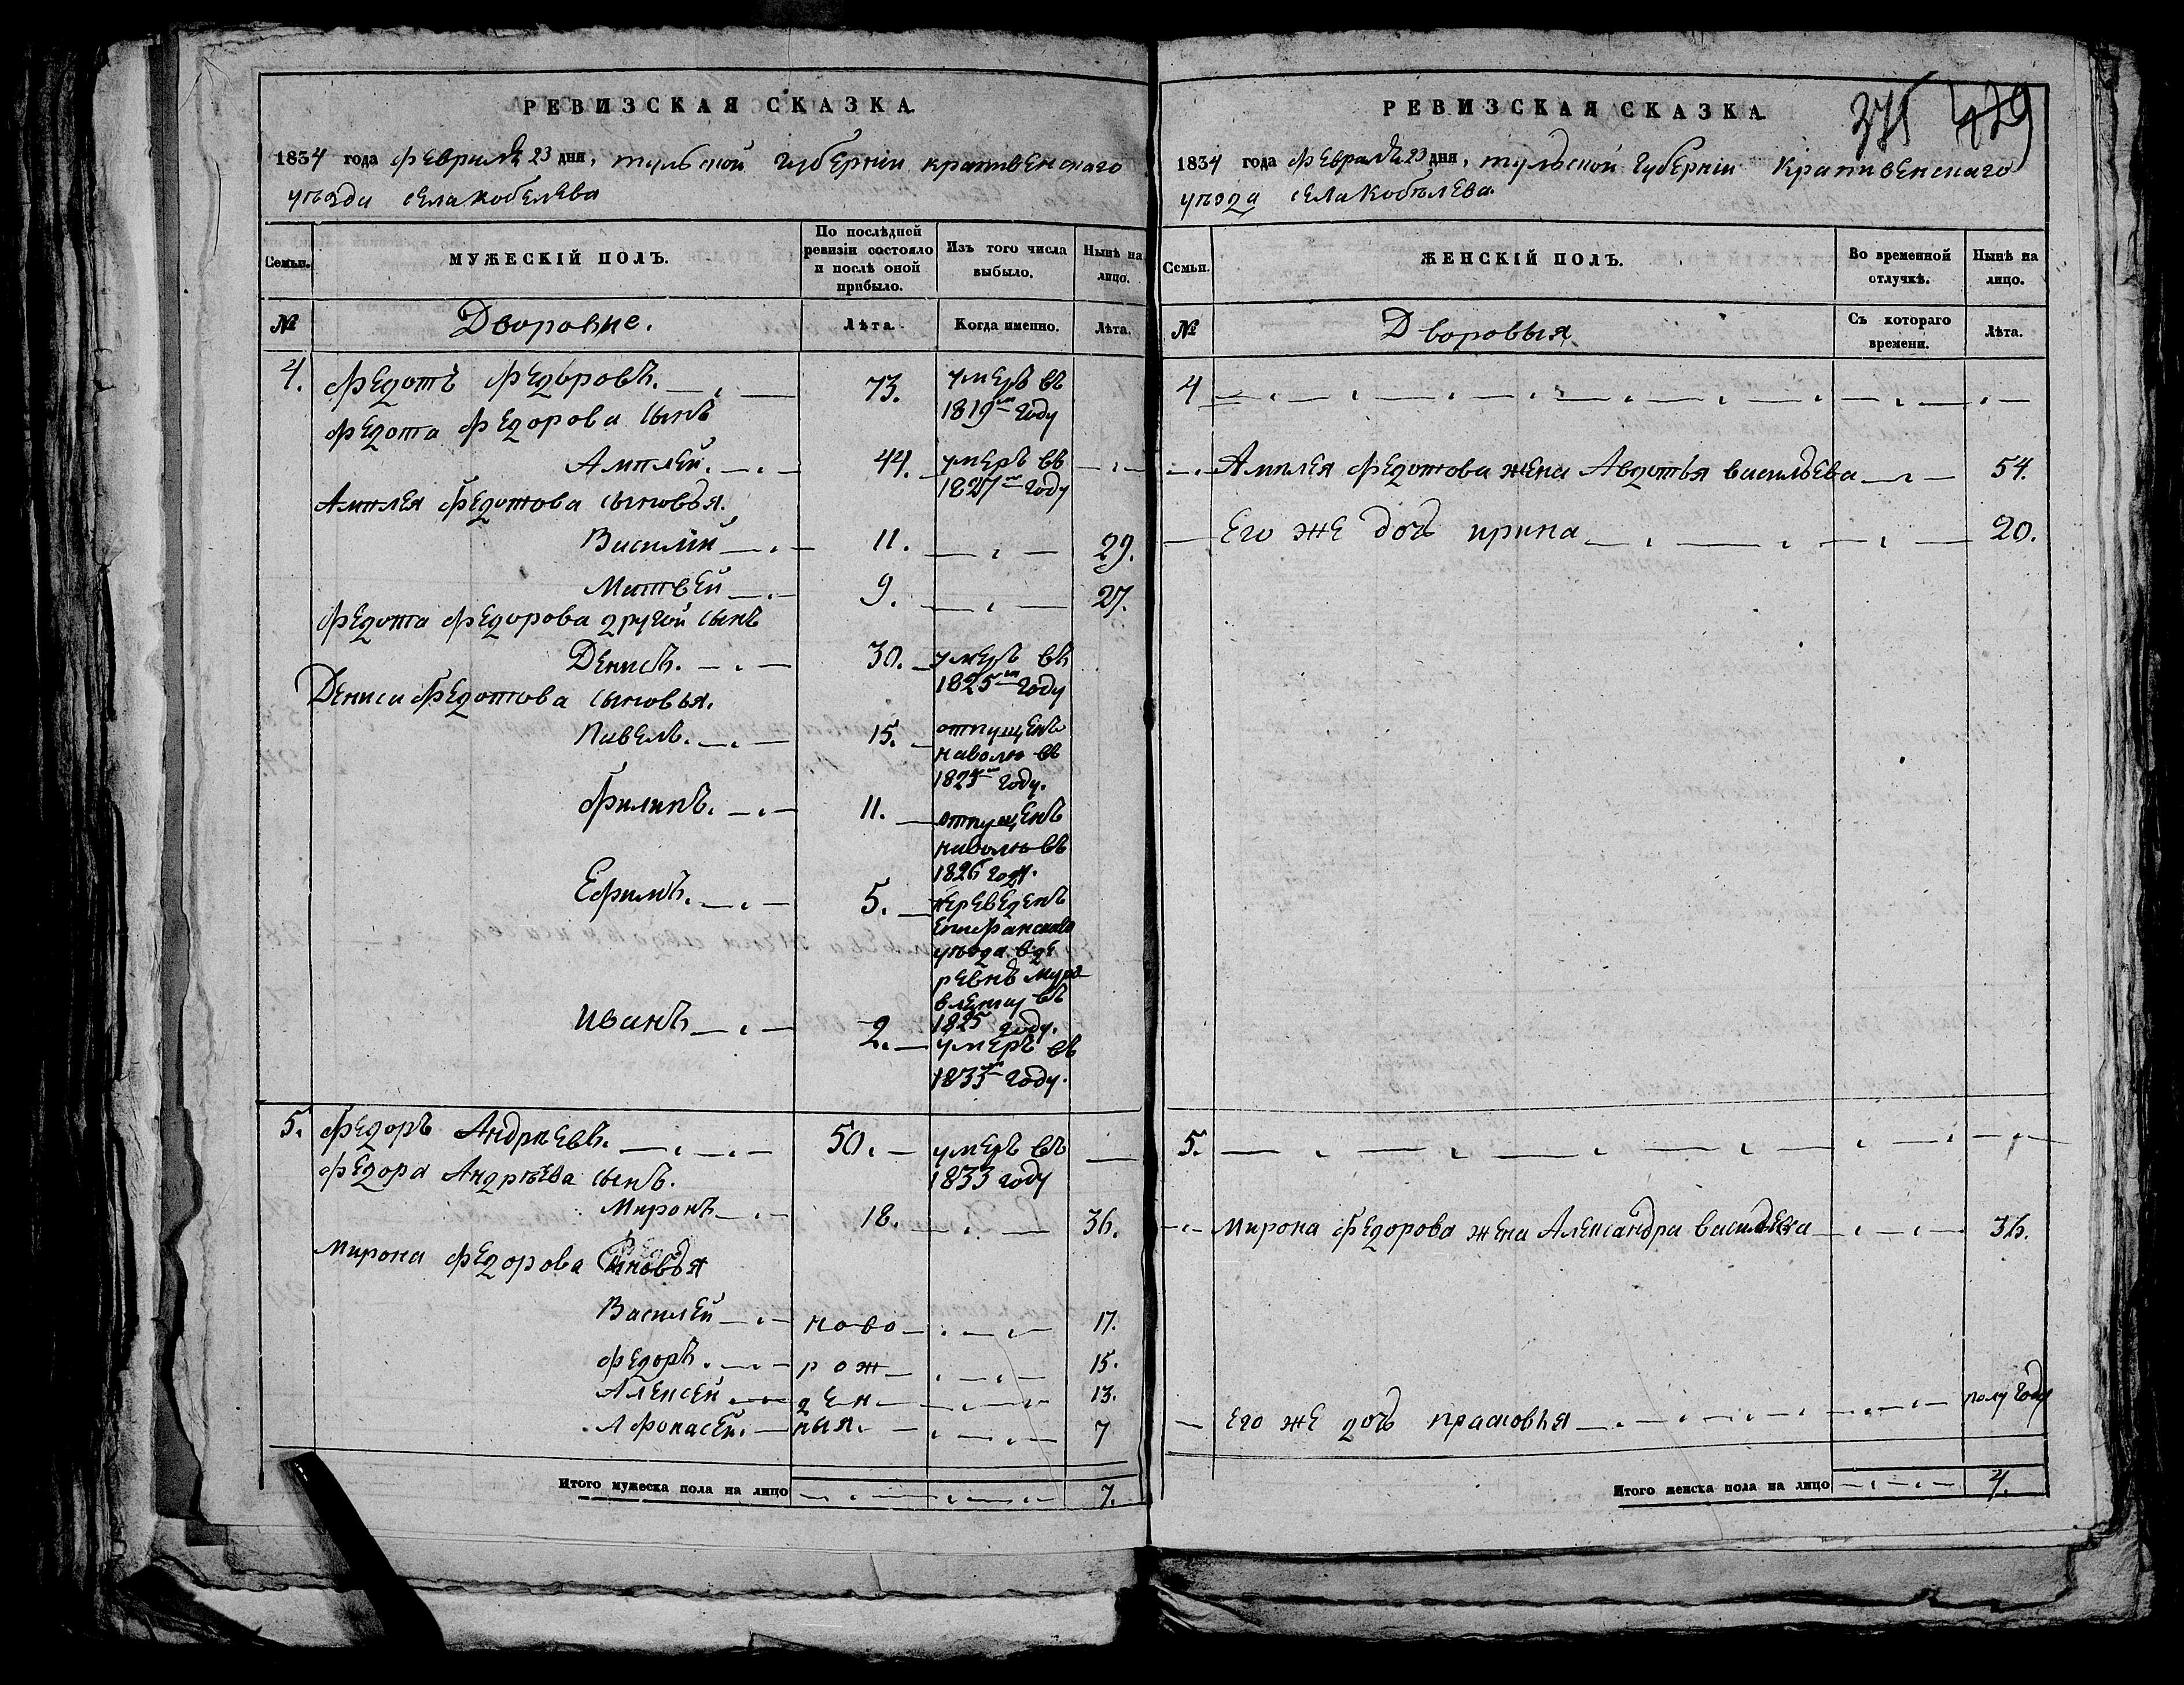 РЕВИЗСКАЯ СКАЗКА.
1834 года февраля 23 дня, тульской губернии крапивенскаго
уѣзда села кобелева
Семьи.
МУЖЕСКІЙ ПОЛЪ.
По послѣдней ревизіи состояло и послѣ оной прибыло.
Изъ того числа выбыло.
Нынѣ на лицо.
№
Дворовые.
Лѣта.
Когда именно.
Лѣта.
4. Федотъ Федоровъ. 73. умеръ въ
1819м году
Федота Федорова сынъ
Амплей. 44. умеръ въ
1827м году
Амплея Федотова сыновья.
Василий 11. 29.
Матвей 9. 27.
Федота Федорова другой сынъ
Денисъ. 30. умеръ въ
1825м году
Дениса Федотова сыновья.
Павелъ. 15. отпущенъ
наволю въ
1825м году.
Филипъ. 11. отпущенъ
наволю въ
1826 году.
Ефимъ. 5. переведенъ
епифанскаго
уѣзда вде
ревнѣ мура
влевку въ
1825 году.
Иванъ 2. умеръ въ
1833м году.
5. Федоръ Андрѣевъ. 50. умеръ въ
1833 году
Федора Андрѣева сынъ.
Миронъ 18. 36.
Мирона Федорова сыновья
Василей ново 17.
Федоръ. рож 15.
Алексей ден 13.
Афонасей. ныя. 7
Итого мужеска пола на лицо 7.
375 429
РЕВИЗСКАЯ СКАЗКА.
1834 года февраля 23 дня, тульской губернии Крапивенскаго
уѣзда села Кобѣлева.
Семьи.
ЖЕНСКІЙ ПОЛЪ.
Во временной отлучкѣ.
Нынѣ на лицо.
№
Дворовыя
Съ котораго времени.
Лѣта.
4
Амплея Федотова жена Авдотья васильева 54.
Его же дочь ирина 20.
5.
Мирона Федорова жена Александра васильева 36.
Его же дочь прасковья полу году
Итого женска пола на лицо 4.